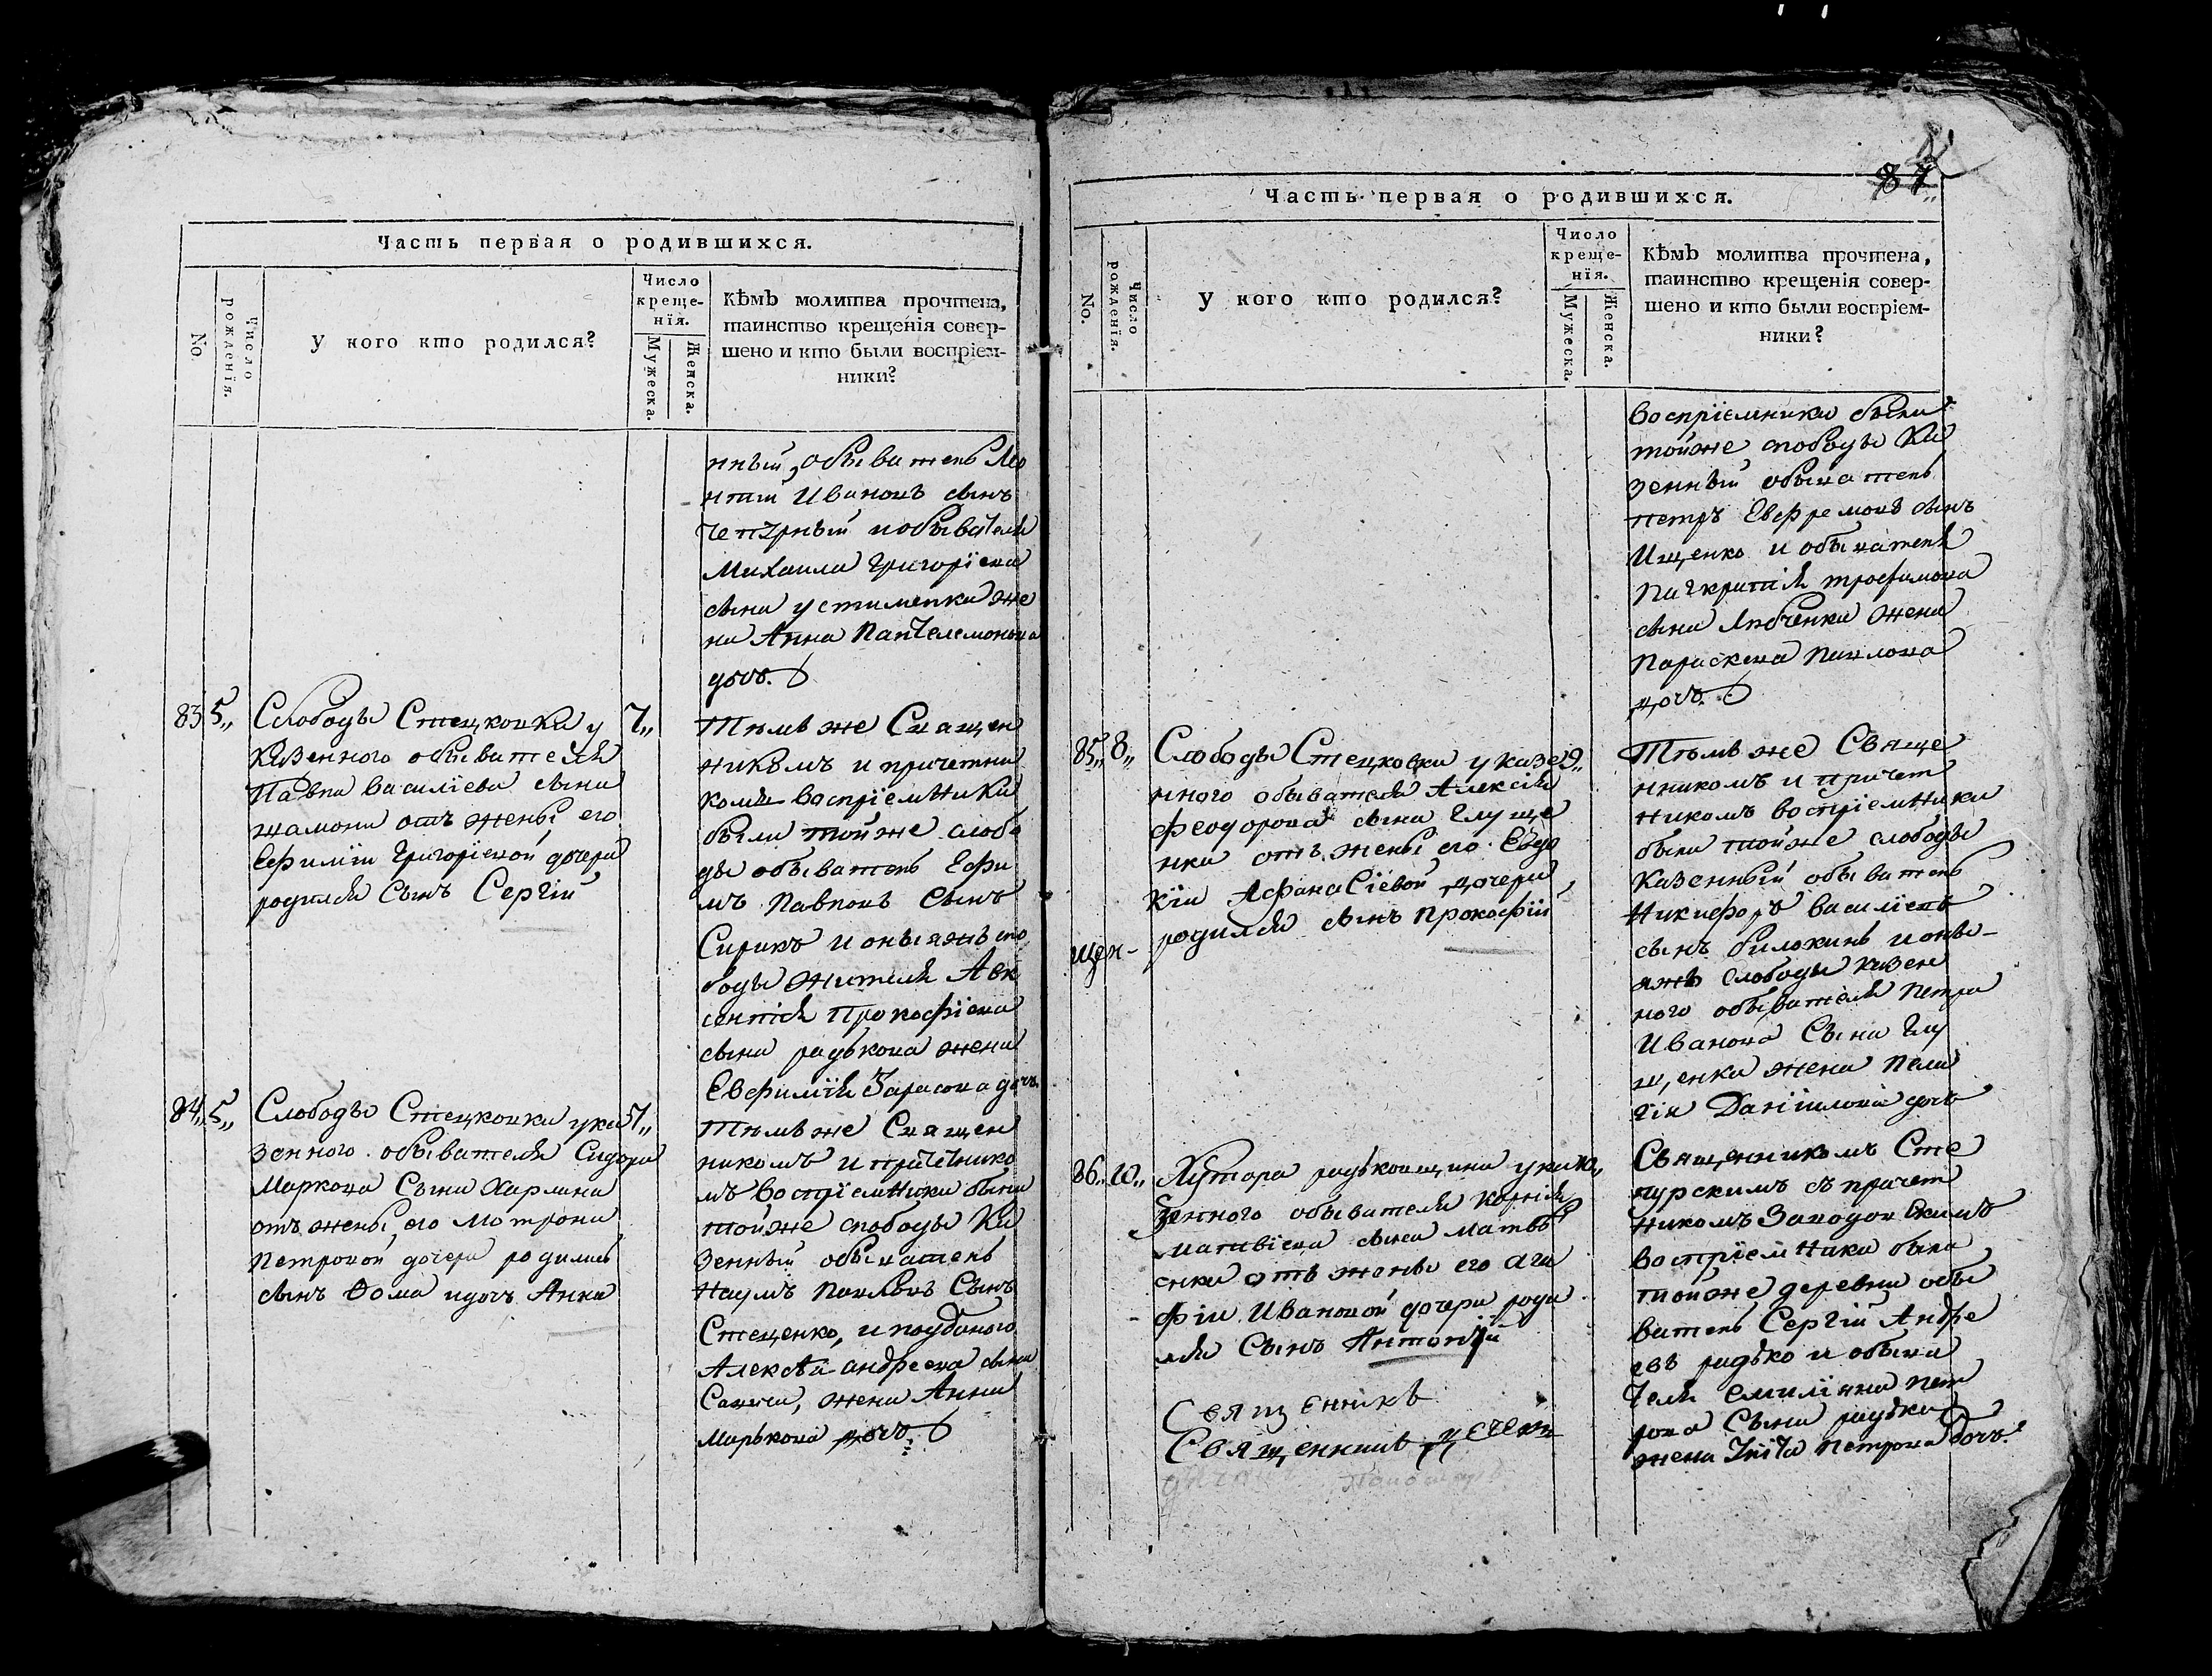 Часть первая о родившихся.
No.
число рожденія.
У кого кто родился?
Число
креще-
нія.
Мужеска.
Женска.
Кѣмъ молитва прочтена,
таинство крещенія совер-
шено и кто были воспріем-
ники?
нный обыватель Лео
нтій Ивановъ сынъ
иобывателя
Михаила Григоріева
сына устименка же
на Анна Пантелемонова
дочь.
83 5„ Слободы Стецковки у 7„
Казенного обывателя
Павла Василіева сына
жамона отъ жены его
Ефиміи Григоріевой дочери
родился Сынъ Сергій
Тѣмъ же Священ
никомъ и причетни
комъ воспріемники
были той же слобо
ды обыватель Ефи
мъ Павловъ Сынъ
Сирикъ и оныяжъ сло
боды жителя Авк
сентія Прокофіева
сына радькова жена
Евфимія Тарасова дочь
84„ 5„ Слободы Стецковки ука 7„
зенного обывателя Сидора
Маркова Сына Харлана
отъ жены его Мотроны
Петровой дочери родились
сынъ Ѳома идочь Анна
Тѣмъ же Священ
никомъ и причетнико
мъ Воспріемники были
тойже слободы Ка
зенный обыватель
Наумъ Павловъ Сынъ
Стеценко, и
Алексѣя андреева сына
Саенка, жена Анна
Марькова дочь.
87„
Часть первая о родившихся.
No.
число рожденія.
У кого кто родился?
Число
креще-
нія.
Мужеска.
Женска.
Кѣмъ молитва прочтена,
таинство крещенія совер-
шено и кто были воспріем-
ники?
воспріемники были
тойже слободы Ка
зенный обыватель
петръ Евфремовъ сынъ
Ищенко и обывателя
Панкратія трофимова
сына Лябченка жена
Параскева Павлова
дочь.
85„ 8„ Слободы Стецковки у казе 9„
нного обывателя Алексія
феодорова сына Глуще
нка отъ жены его Евдо
кіи Афанасіевой дочери
родился сынъ Прокофій
щен-
Тѣмъ же Свяще
нникомъ и причет
никомъ воспріемники
были той же слободы
Казенный обыватель
Никифоръ василіевъ
сынъ билокинь ионы-
яжъ слободы казен
ного обывателя Петра
Иванова Сына Глу
щенка жена Пела
гія Даніилова дочь
86„ 10„ Хутора радьковщина ука 10„
зенного обывателя Корнія
матвіева сына матвѣ
енка отъ жены его ага
фіи Ивановой дочери роди
лся Сынъ Антоній
Священникомъ Сте
пурскимъ съ причет
никомъ
воспріемники были
тойже деревни обы
ватель Сергій Андре
евъ радько и обыва
теля емиліяна пет
рова Сына радька
жена Петрова дочь.
Священникъ
Священникъ